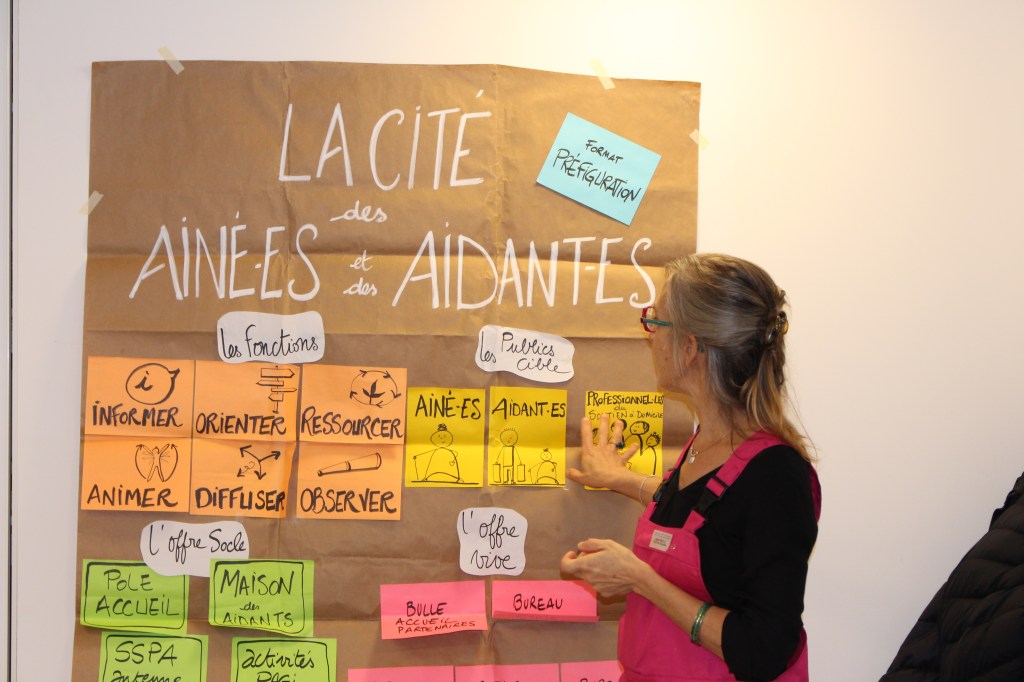 LA CITÉ
des
AINÉ-ES et des AIDANT-ES
FORMAT
PRÉFIGURATION
les Fonctions
les Publics
Cible
INFORMER
ORIENTER
RESSOURCER
ANIMER
DIFFUSER
OBSERVER
AINÉ-ES
AIDANT-ES
PROFESSIONNEL-LES
du
SOUTIEN à DOMICILE
l'offre Socle
l'offre
vive
POLE
ACCUEIL
MAISON
des
AIDANTS
SSPA
antenne
activités
BULLE
ACCUEIL
PARTENAIRES
BUREAU